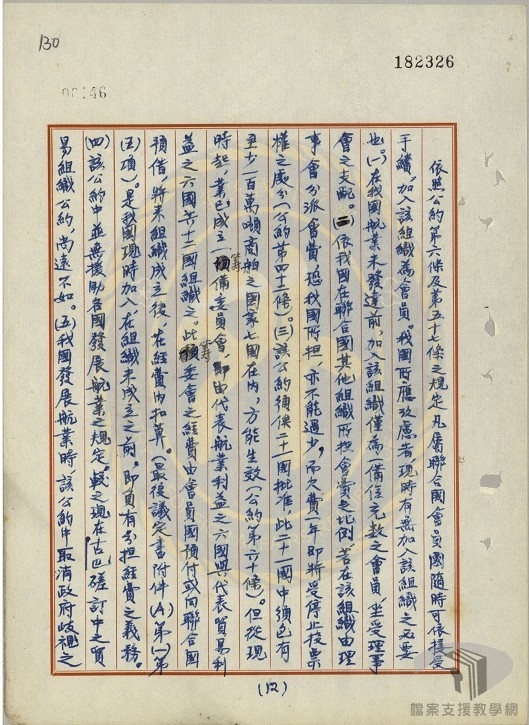 130
182326
00146
依照公約第六條及第五十七條之規定凡屬聯合國會員國隨時可依接受
手續，加入該組織為會員。我國所應攷慮者現時有無加入該組織之必要
也。(一)在我國航業未發達前，加入該組織僅為一備位充數之會員，坐受理事
會之支配。(二)依我國在聯合國其他組織所担會費之比例，若在該組織由理
事會分派會費恐我國所担亦不能過少，而欠費一年即將受停止投票
權之處分(公約第四十二條)。(三)該公約須俟二十一國批准，此二十一國中須包有
至少一百萬噸商船之國家七國在內，方能生效(公約第六十條)。但從現
時起，業已成立一籌備委員會，即由代表航業利益之六國與代表貿易利
益之六國共十二國組織之。此籌委會之經費由會員國預付或向聯合國
預借，將來組織成立後，在經費內扣算。(最後議定書附件(A)第(一)第
(五)項)。是我國現時加入，在組織未成立之前，即負有分担經費之義務。
(四)該公約中並無援助各國發展航業之規定，較之現在古巴磋訂中之貿
易組織公約，尚遠不如。(五)我國發展航業時，該公約中取消政府歧視之
(12)
檔案支援教學網